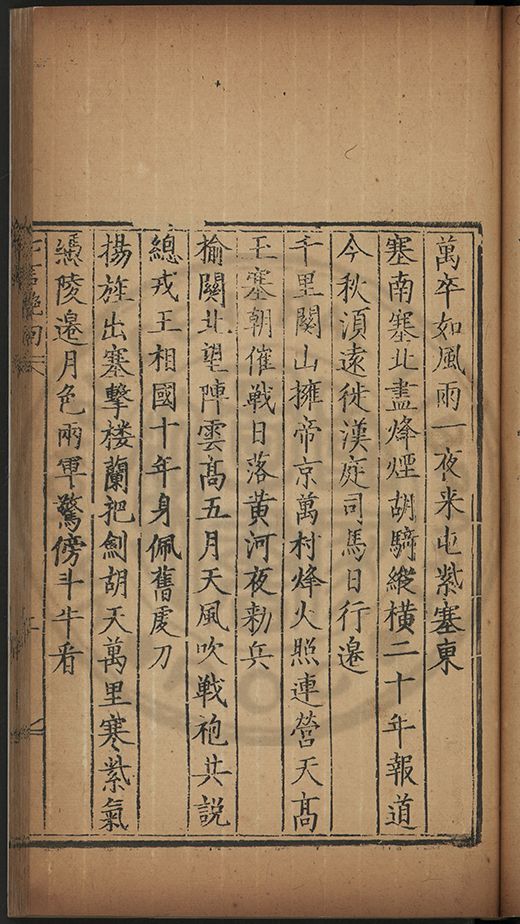 萬卒如風雨一夜来屯紫塞東
塞南塞北盡烽煙胡騎縱橫二十年報道
今秋湏遠徙漢庭司馬日行邉
千里關山擁帝京萬村烽火照連營天髙
玉塞朝催戦日落黄河夜勑兵
榆關北望陣雲髙五月天風吹戦袍共説
總戎王相國十年身佩舊䖍刀
揚旌出塞擊楼蘭把劍胡天萬里寒紫氣
憑陵邉月色兩軍驚傍斗牛看
七言絶句